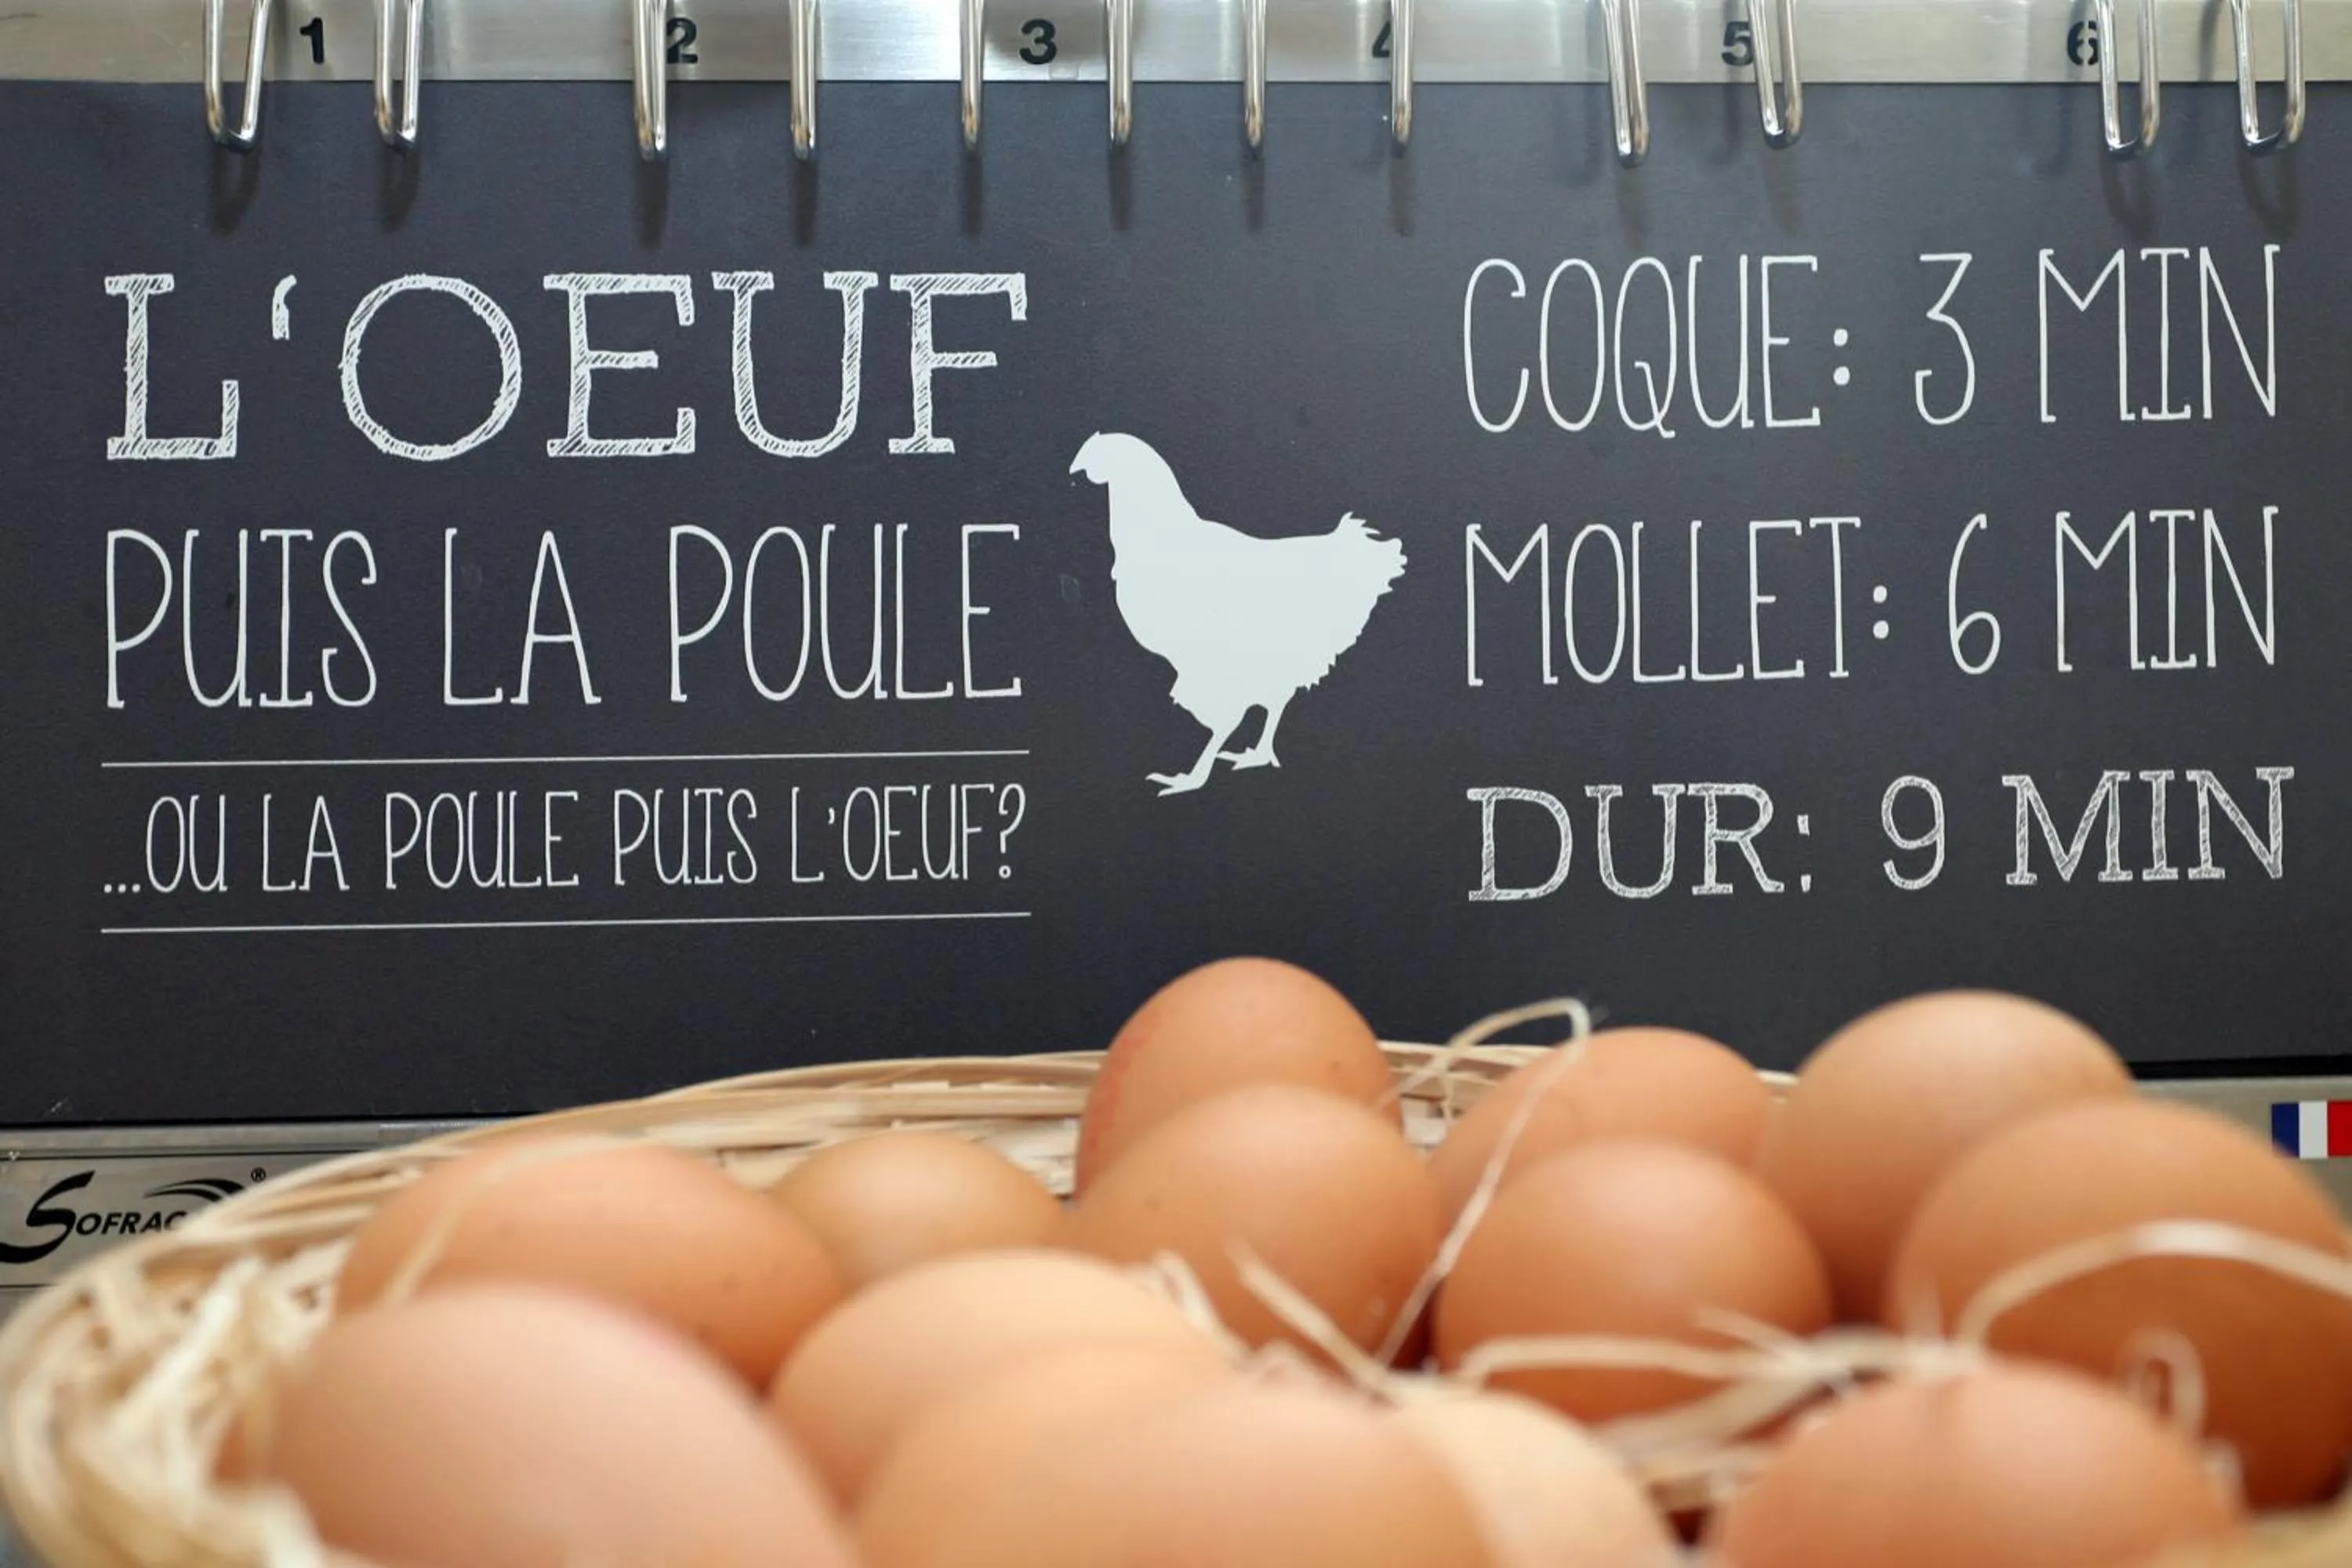 1 2 3 4 5 6
L'OEUF
PUIS LA POULE
...OU LA POULE PUIS L'OEUF?
COQUE: 3 MIN
MOLLET: 6 MIN
DUR: 9 MIN
SOFRAC
®